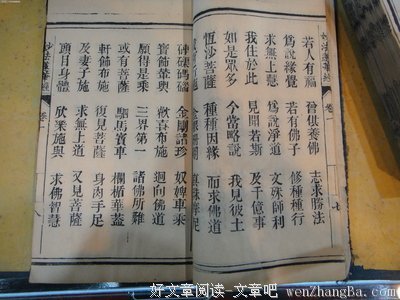 妙法蓮華經 卷一 七
若人有福 曾供養佛 志求勝法
為說緣覺 若有佛子 修種種行
求無上慧 為說淨道 文殊師利
我住於此 見聞若斯 及千億事
如是眾多 今當略說 我見彼土
恆沙菩薩 種種因緣 而求佛道
行施 金銀珊瑚 真珠摩尼
硨磲碼碯 金剛諸珍 奴婢車乘
寶飾輦輿 歡喜布施 迴向佛道
願得是乘 三界第一 諸佛所歎
或有菩薩 駟馬寶車 欄楯華蓋
軒飾布施 復見菩薩 身肉手足
及妻子施 求無上道 又見菩薩
頭目身體 欣樂施與 求佛智慧
妙法蓮華經 卷一
好文章阅读-文章吧
wenZhangBa.com